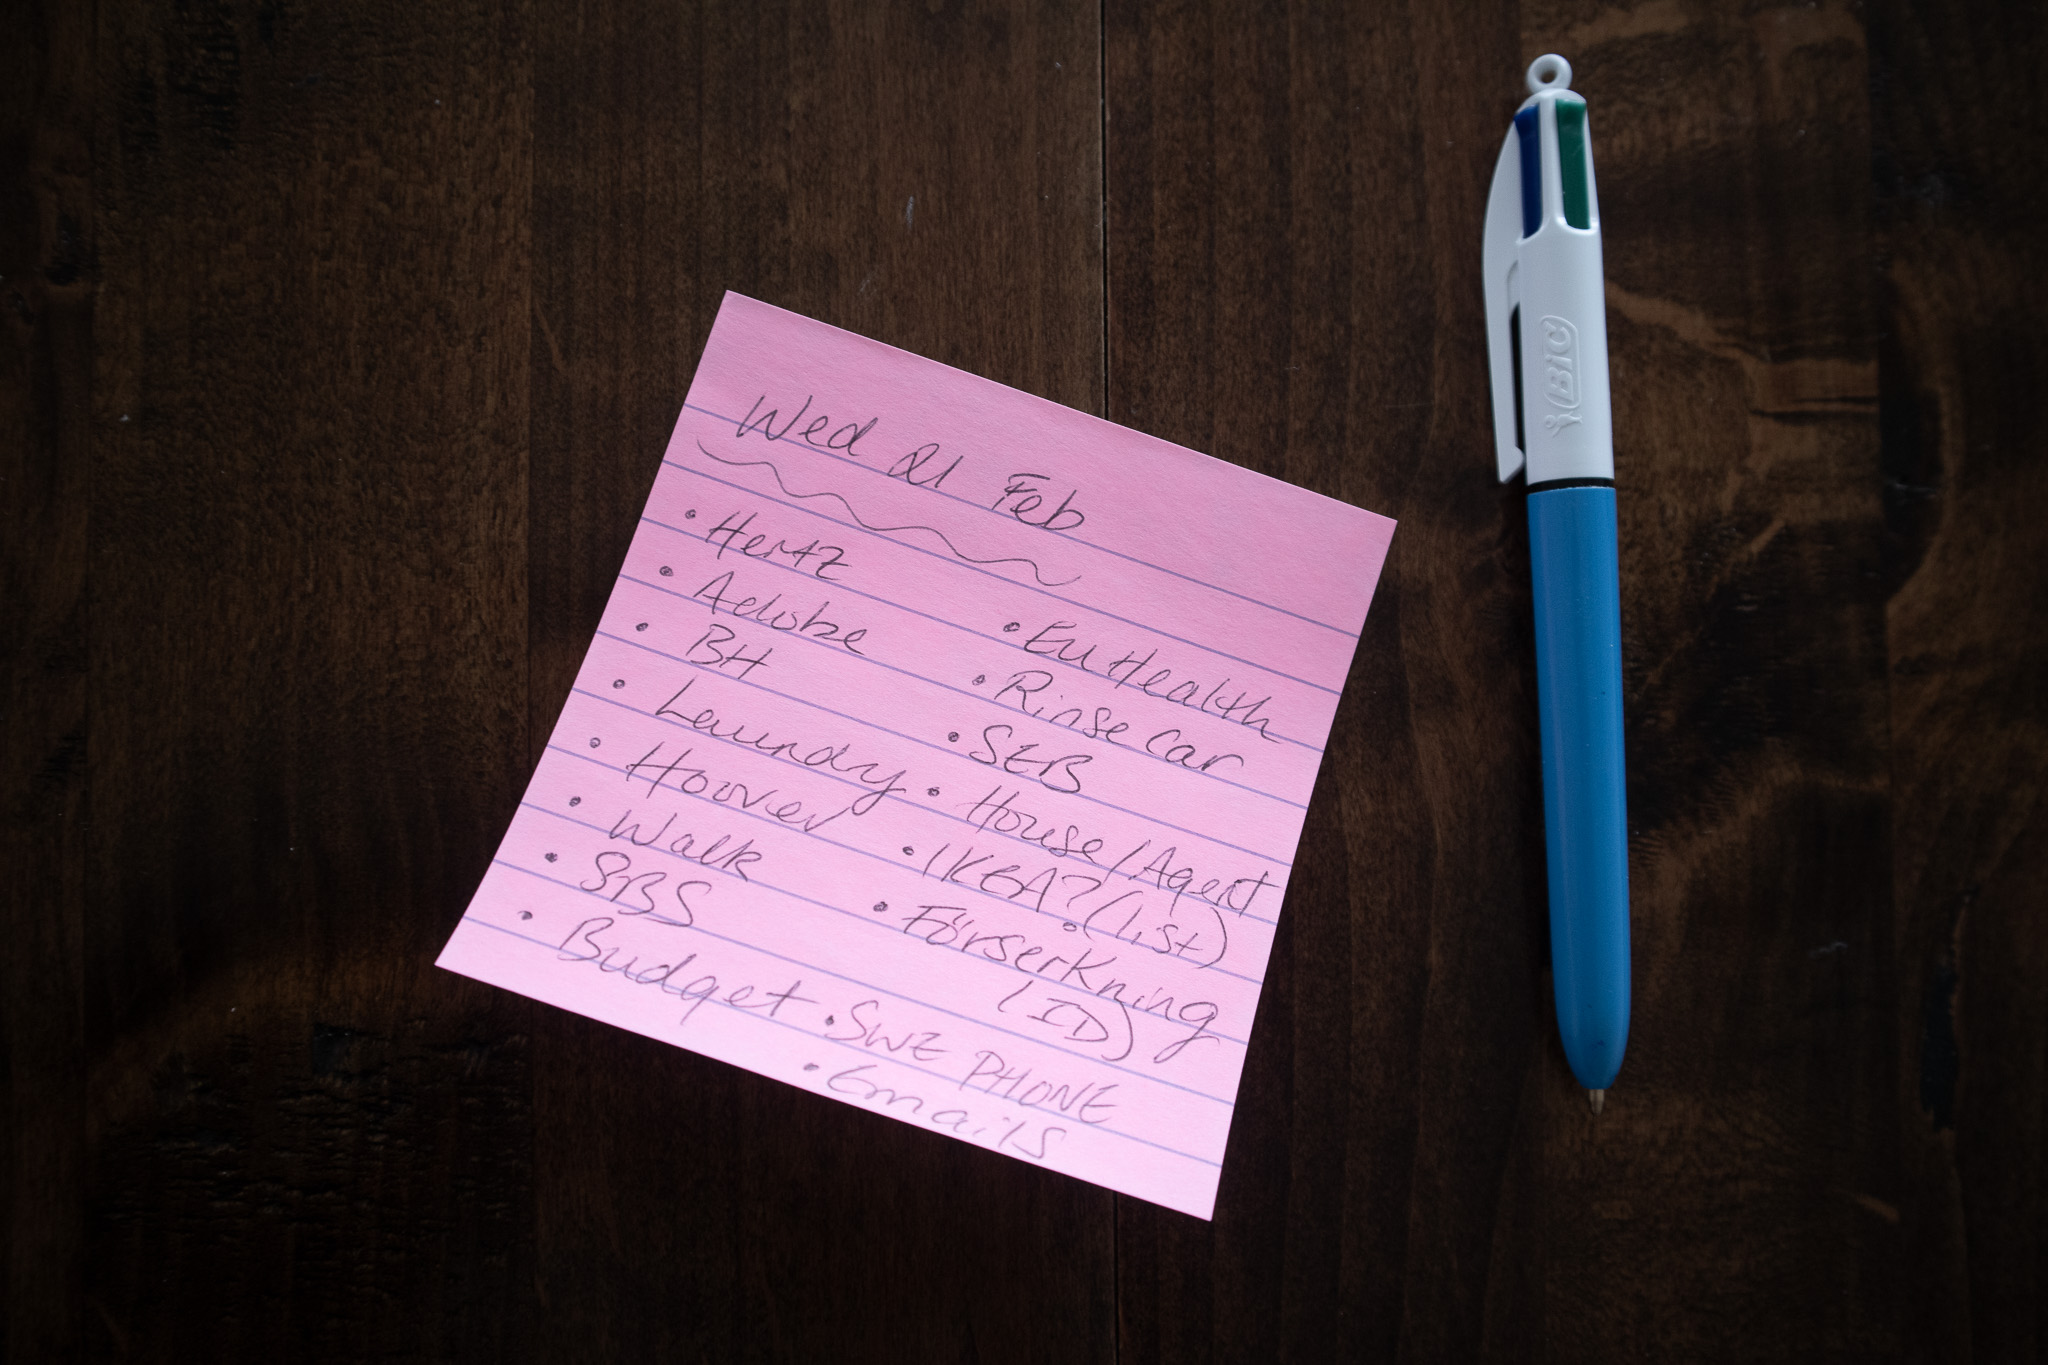 Wed 21 Feb
• Hertz
• Adobe
• BH
• Laundry
• Hoover
• Walk
• SBS
• Budget
• EU Health
• Rinse car
• SEB
• House/Agent
• IKEA? (list)
• Förserkning
(ID)
• SWE PHONE
• Emails
BIC